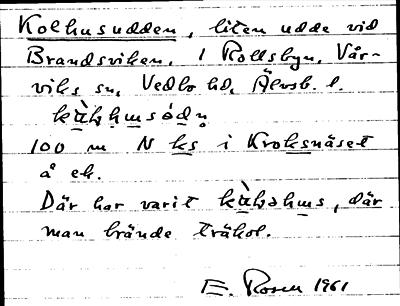 Kolhusudden, liten udde vid
Brandsviken, i Rollsbyn, Vår-
viks sn, Vedbo hd, Älvsb. l.
100 m N ks i Kroksnäset
å ek.
Där har varit, där
man brände träkol.
E. Rosen 1961